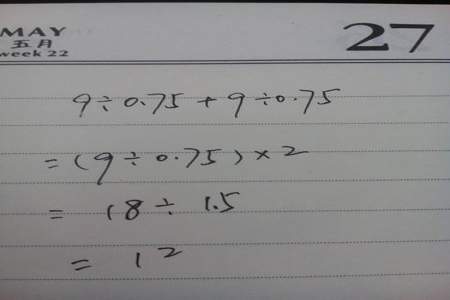 MAY
27
五月
week 22
9÷0.75+9÷0.75
=(9÷0.75)×2
= 18÷ 1.5
= 12